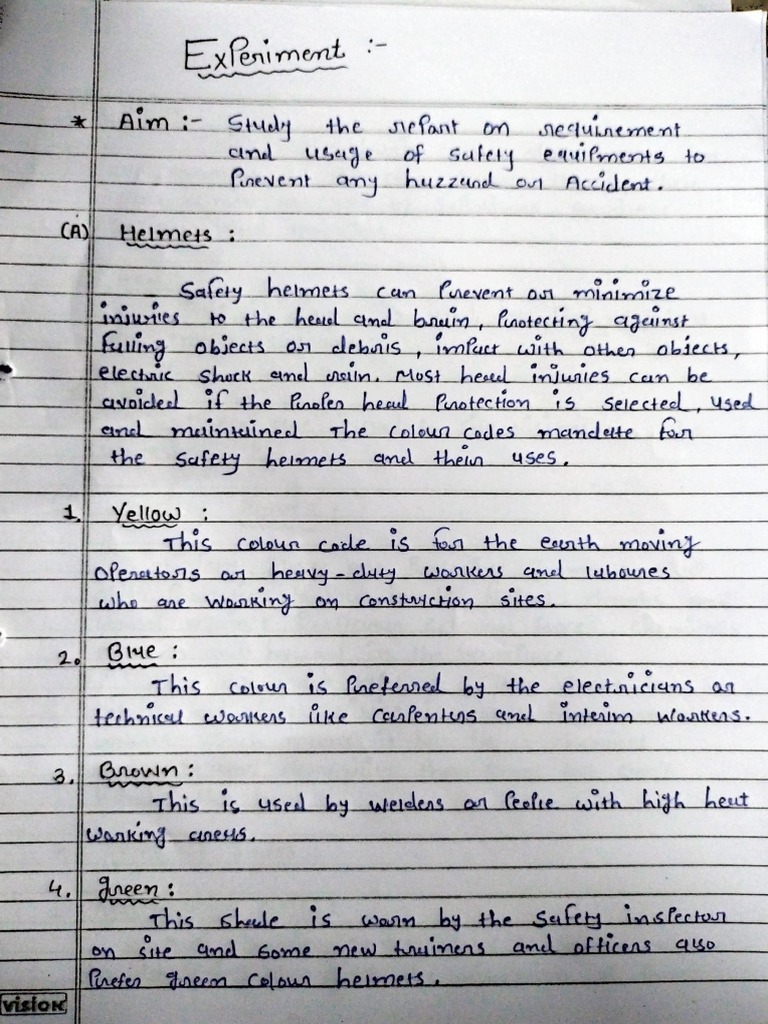 Experiment :-
* Aim :- Study the report on requirement
and usage of safety equipments to
Prevent any huzzard or Accident.
(A) Helmets :
Safety helmets can Prevent or minimize
injuries to the head and brain, Protecting against
falling objects or debris, impact with other objects,
electric shock and rain. Most head injuries can be
avoided if the Proper head Protection is selected, used
and maintained The colour codes mandate for
the safety helmets and their uses.
1. Yellow :
This colour code is for the earth moving
operators or heavy-duty workers and laboures
who are working on construction sites.
2. Blue :
This colour is Preferred by the electricians or
technical workers like carpenters and interim workers.
3. Brown :
This is used by welders or People with high heat
working areas.
4. green :
This shade is worn by the safety inspector
on site and some new trainers and officers also
Prefer green colour helmets.
vision